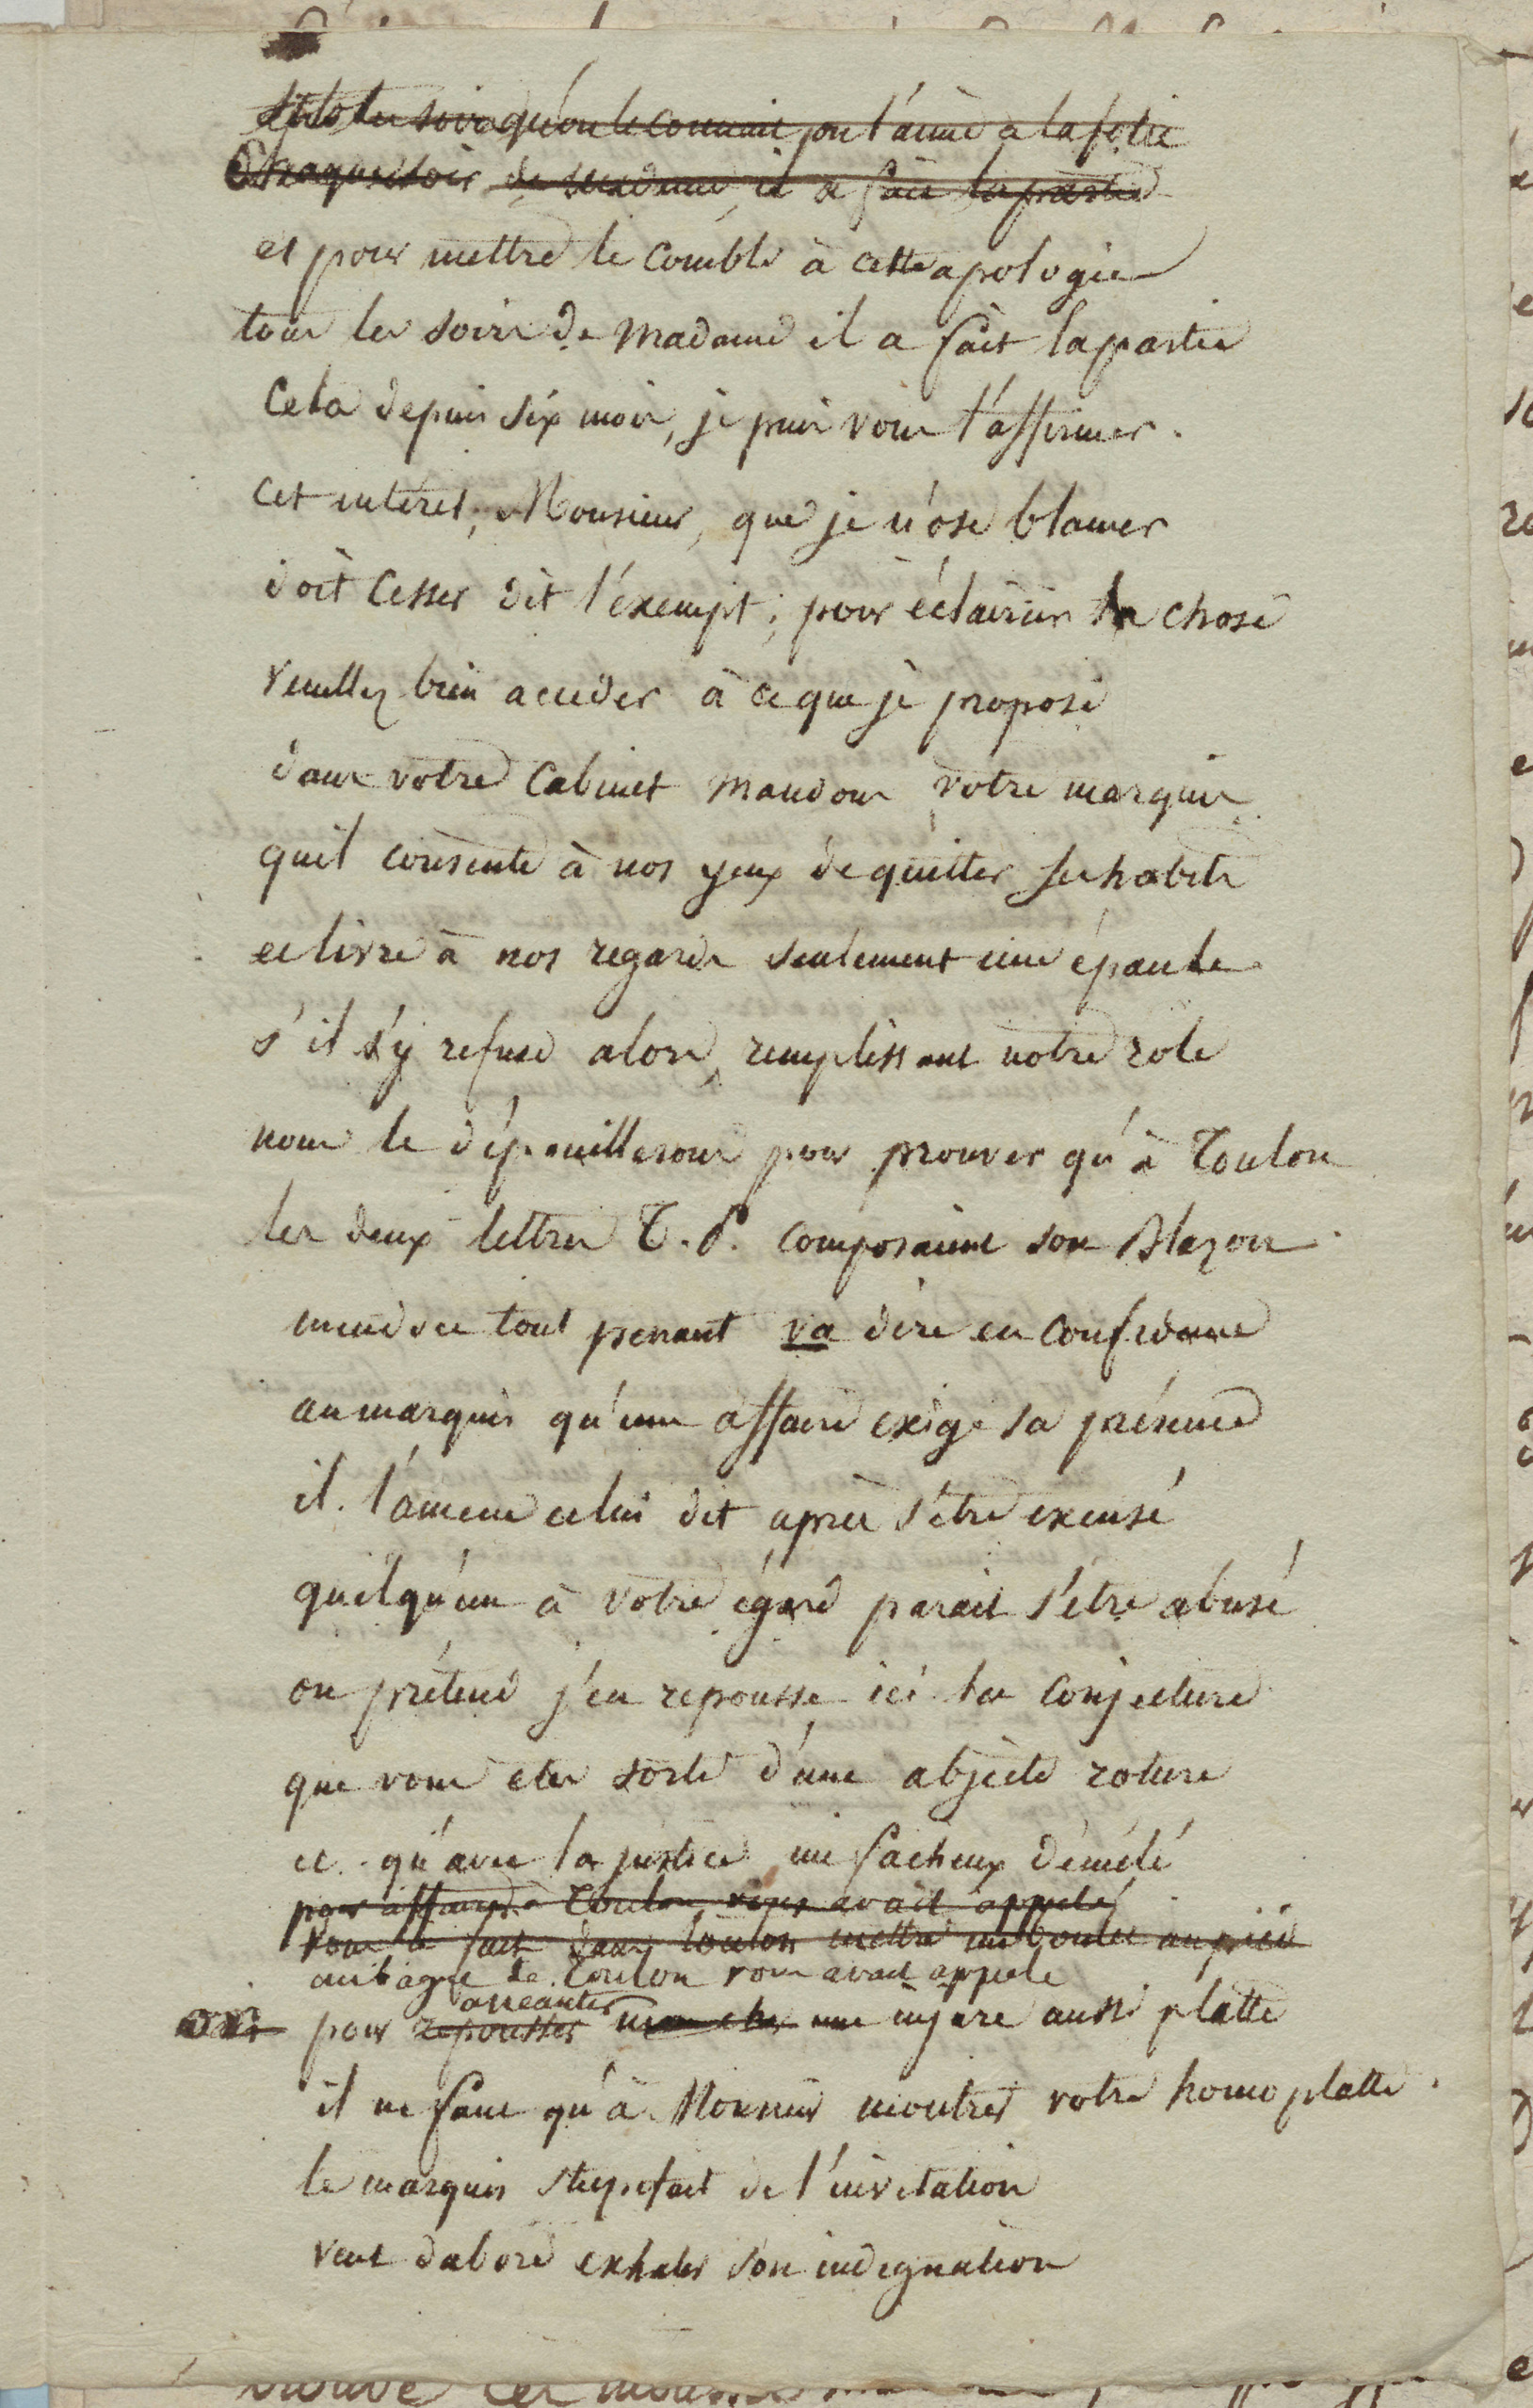 qu'on le connait, on l'aime a la folie
Chaque soir de madame, il a fait la partie
et pour mettre le comble à cette apologie
tous les soirs de Madame il a fait la partie
Cela depuis six mois, je puis vous l'affirmer.
Cet intéret, Monsieur, que je n'ose blamer
doit Cesser dit l'exempt; pour éclaircir la chose
veuillez bien acceder à ce que je propose
dans votre Cabinet mandons votre marquis
quil consente à nos yeux de quitter ses habits
et livre à nos regards seulement une épaule
s'il s'y refuse alors, remplissant notre role
nous le dépouillerons pour prouver qu'à Toulon
les deux lettres T. P. composaient son Blazon.
tout penaut va dire en confidence
au marquis qu'une affaire exige sa présence
il l'amene et lui dit après s'être excusé
quelqu'un à votre égard parait s'être abusé
on prétend j'en repousse ici la conjecture
que vous etes sorti d'une abjecte roture
et qu'avec la justice un facheux démélé
pour affaire à Toulon, vous avait appelé
vous a fait dans toulon mettre un boulet au pied
au bagne de Toulon vous avait appele
anéantir
pour repousser mon cher une injure aussi platte
il ne faut qu'à Monsieur montrer votre homoplatte.
le marquis stupefait de l'invitation
veut dabord exhaler son indignation